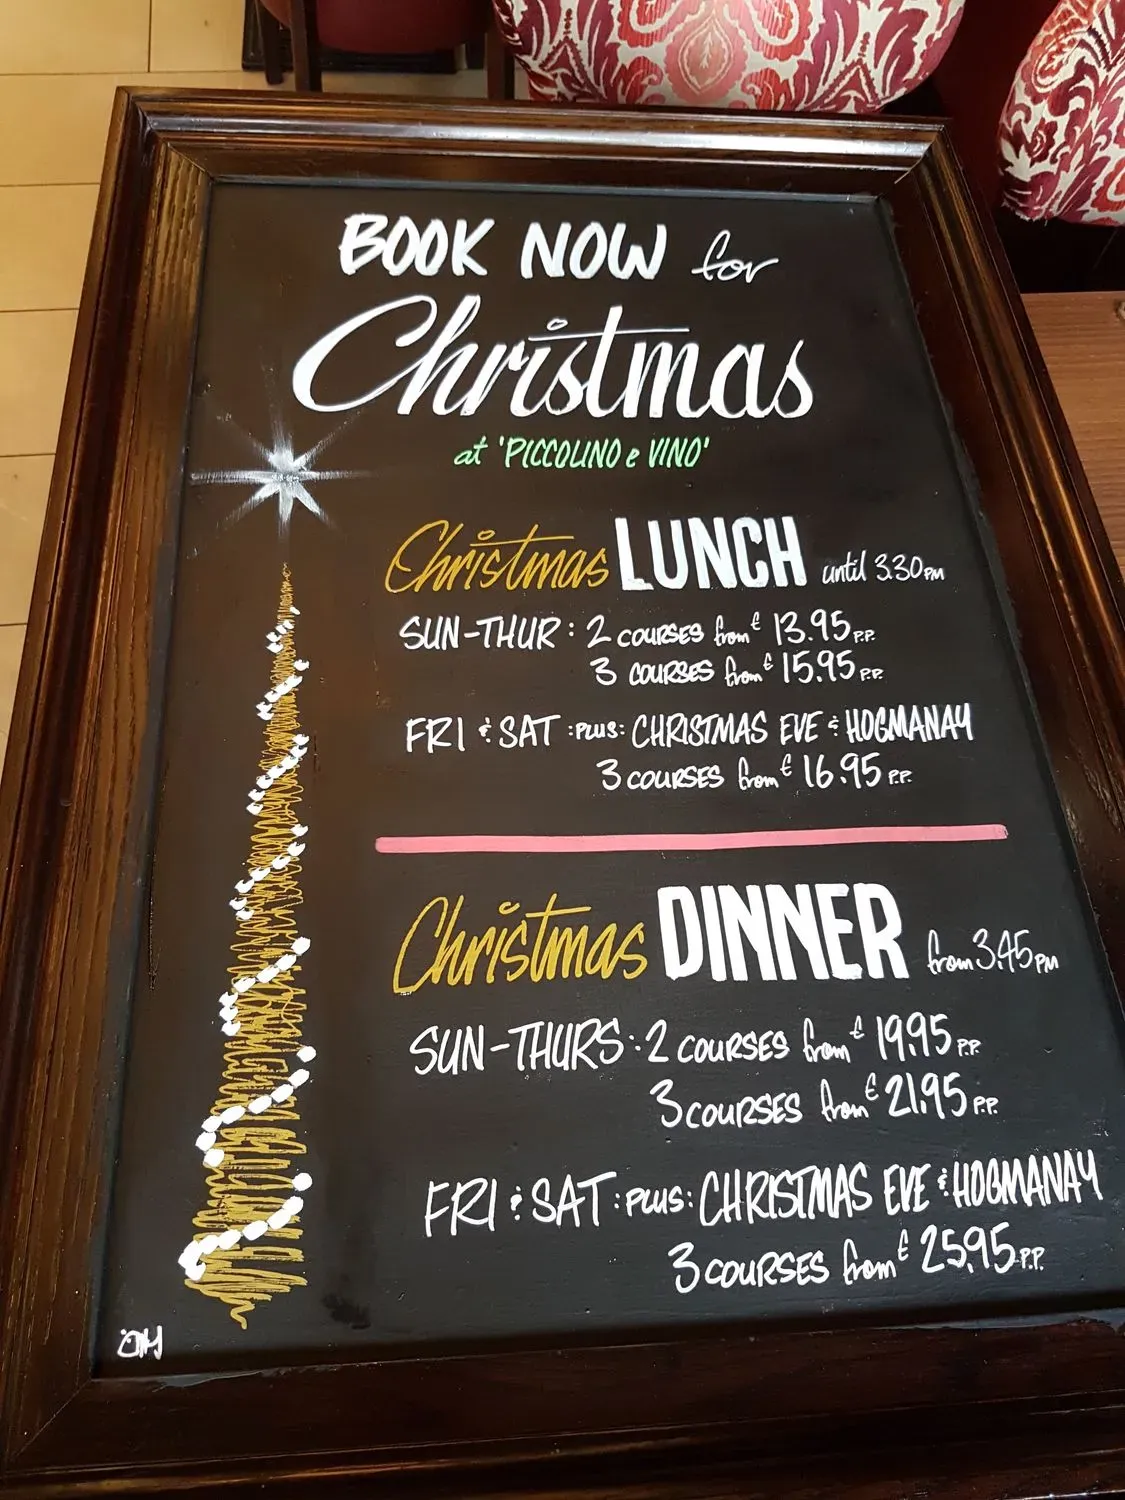 BOOK NOW for
Christmas
at 'PICCOLINO e VINO'
Christmas LUNCH until 3.30PM
SUN-THUR: 2 COURSES from £ 13.95 P.P.
3 COURSES from £ 15.95 P.P.
FRI & SAT :PLUS: CHRISTMAS EVE & HOGMANAY
3 COURSES from £ 16.95 P.P.
Christmas DINNER from 3.45PM
SUN-THURS: 2 COURSES from £ 19.95 P.P.
3 COURSES from £ 21.95 P.P.
FRI & SAT :PLUS: CHRISTMAS EVE & HOGMANAY
3 COURSES from £ 25.95 P.P.